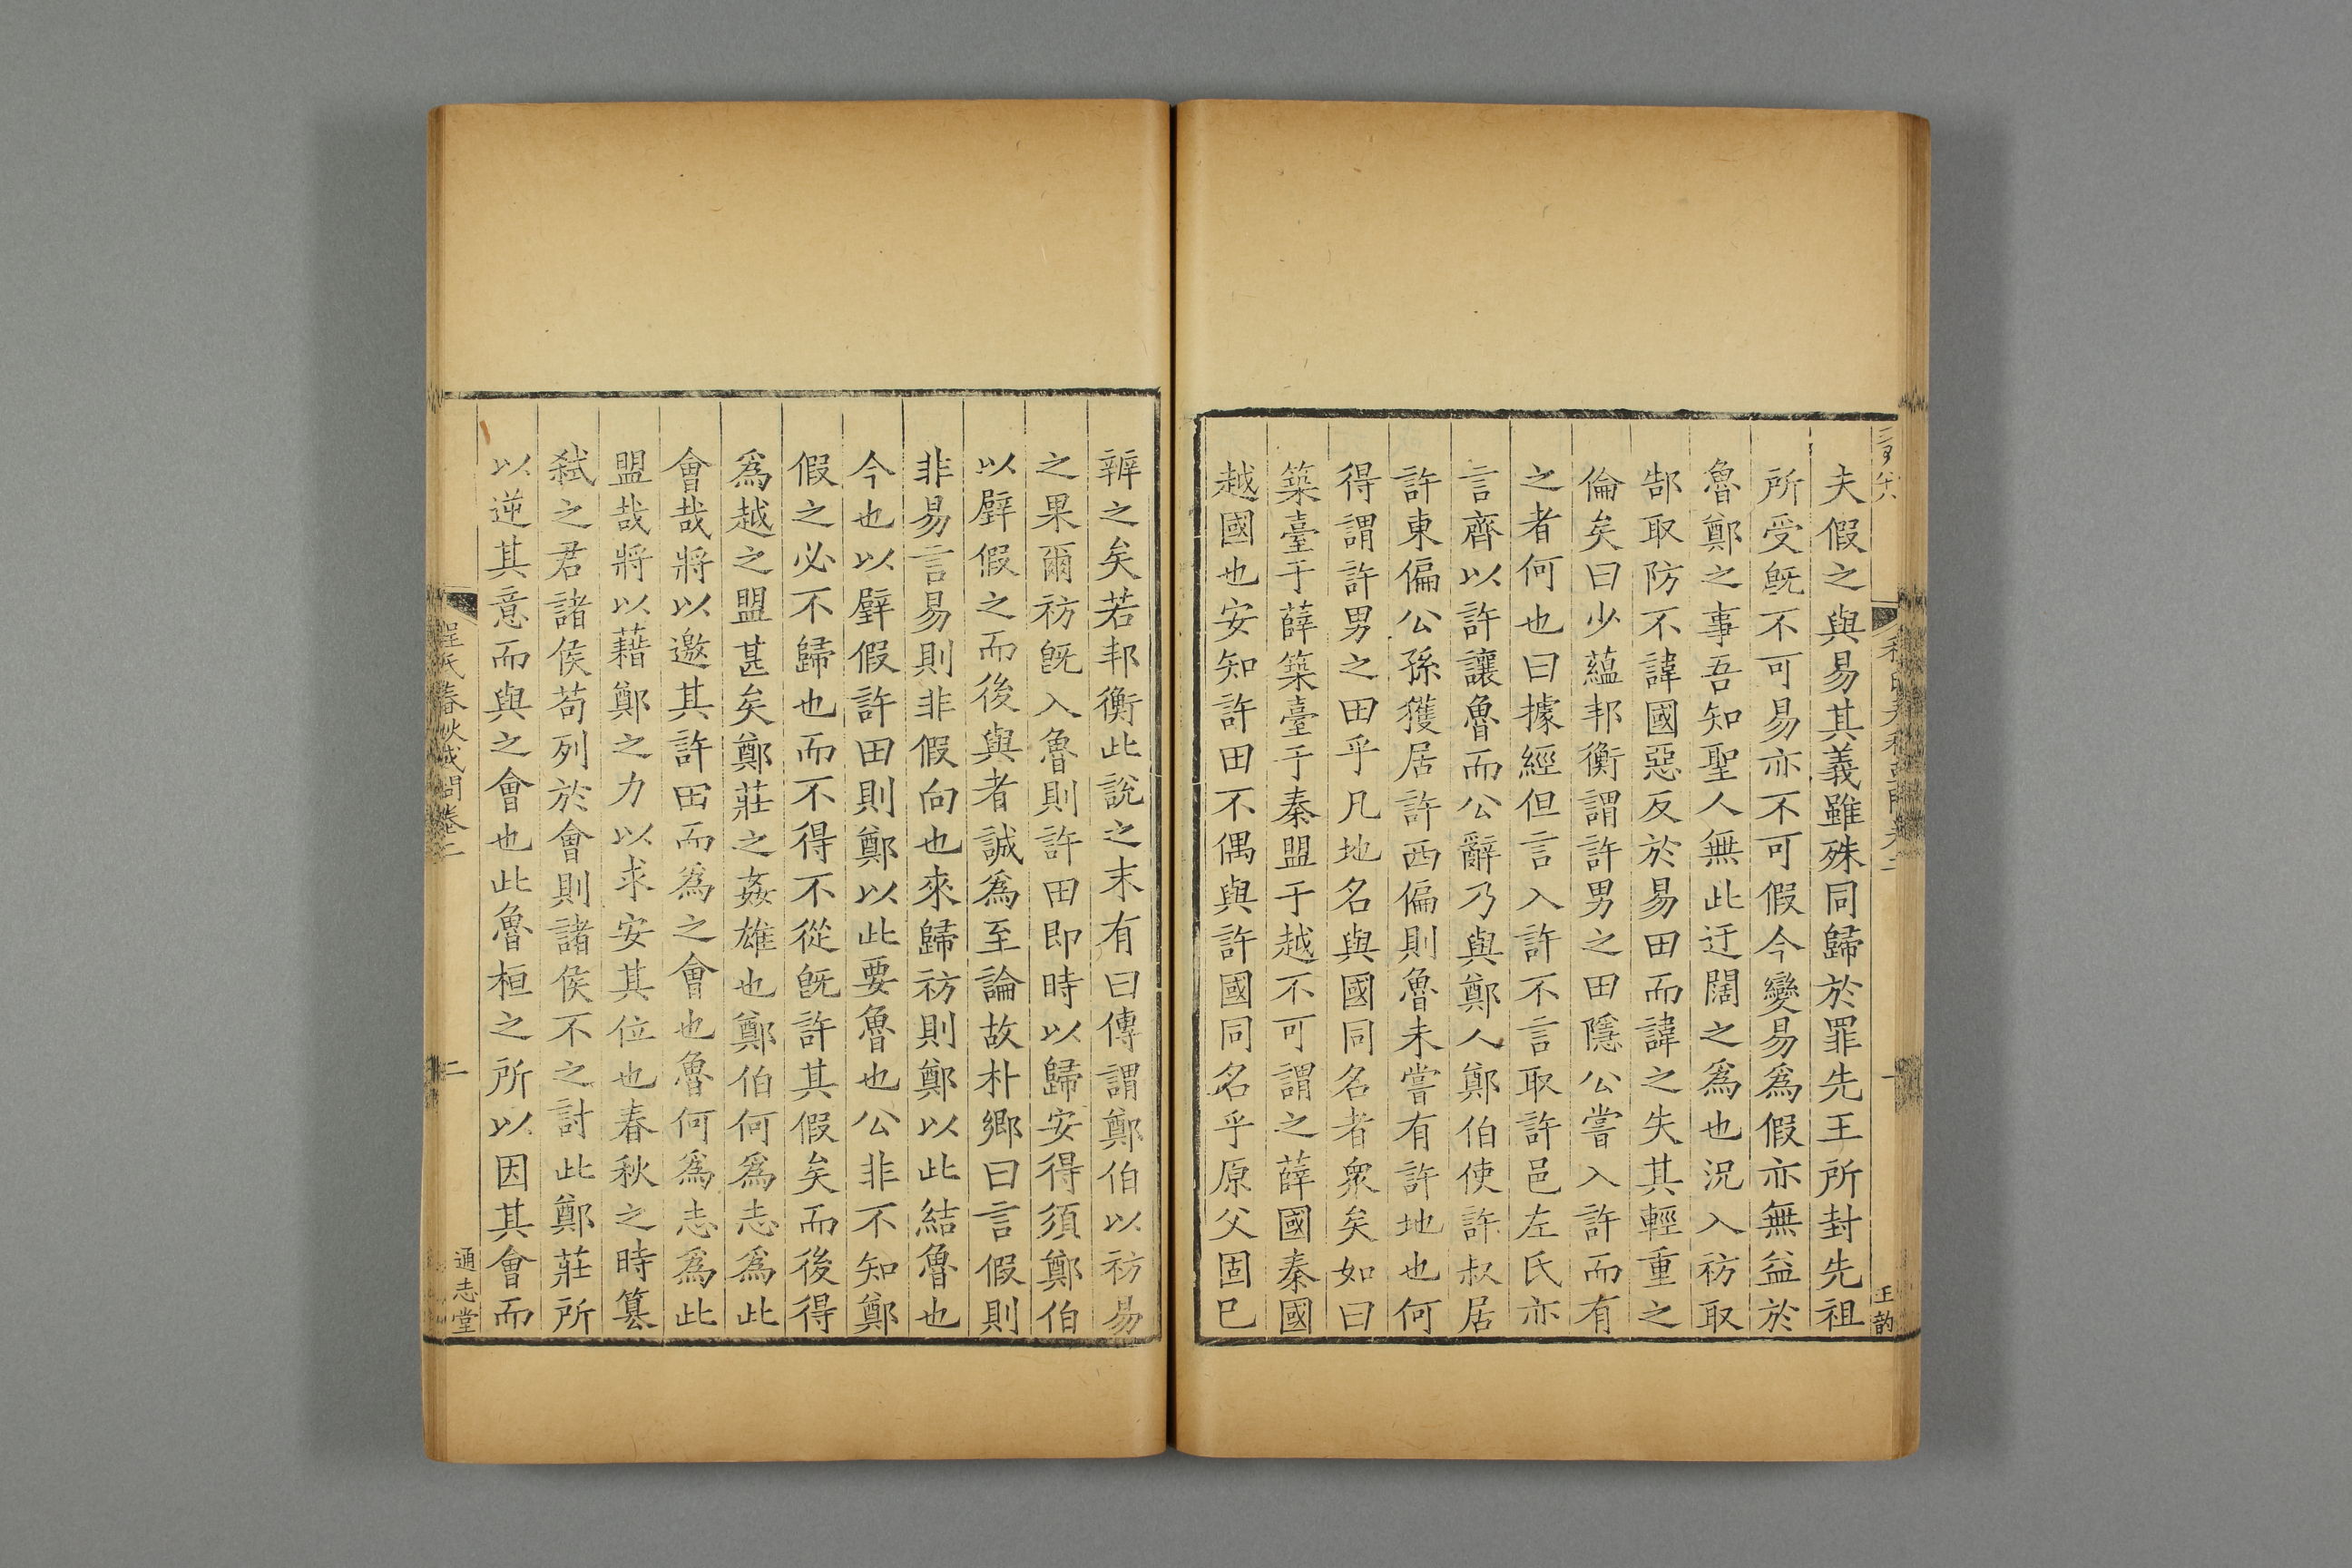 夫假之與易其義雖殊同歸於罪先王所封先祖
所受旣不可易亦不可假今變易爲假亦無益於
魯鄭之事吾知聖人無此迂闊之爲也況入祊取
郜取防不諱國惡反於易田而諱之失其輕重之
倫矣曰少蘊邦衡謂許男之田隱公嘗入許而有
之者何也曰據經但言入許不言取許邑左氏亦
言齊以許讓魯而公辭乃與鄭人鄭伯使許叔居
許東偏公孫獲居許西偏則魯未嘗有許地也何
得謂許男之田乎凡地名與國同名者衆矣如曰
築臺于薛築臺于秦盟于越不可謂之薛國秦國
越國也安知許田不偶與許國同名乎原父固已
辨之矣若邦衡此說之末有曰傳謂鄭伯以祊易
之果爾祊旣入魯則許田即時以歸安得須鄭伯
以璧假之而後與者誠爲至論故朴鄉曰言假則
非易言易則非假向也來歸祊則鄭以此結魯也
今也以璧假許田則鄭以此要魯也公非不知鄭
假之必不歸也而不得不從旣許其假矣而後得
爲越之盟甚矣鄭莊之姦雄也鄭伯何爲志爲此
會哉將以邀其許田而爲之會也魯何爲志爲此
盟哉將以藉鄭之力以求安其位也春秋之時簒
弑之君諸侯苟列於會則諸侯不之討此鄭莊所
以逆其意而與之會也此魯桓之所以因其會而
程氏春秋或問卷二
二
通志堂